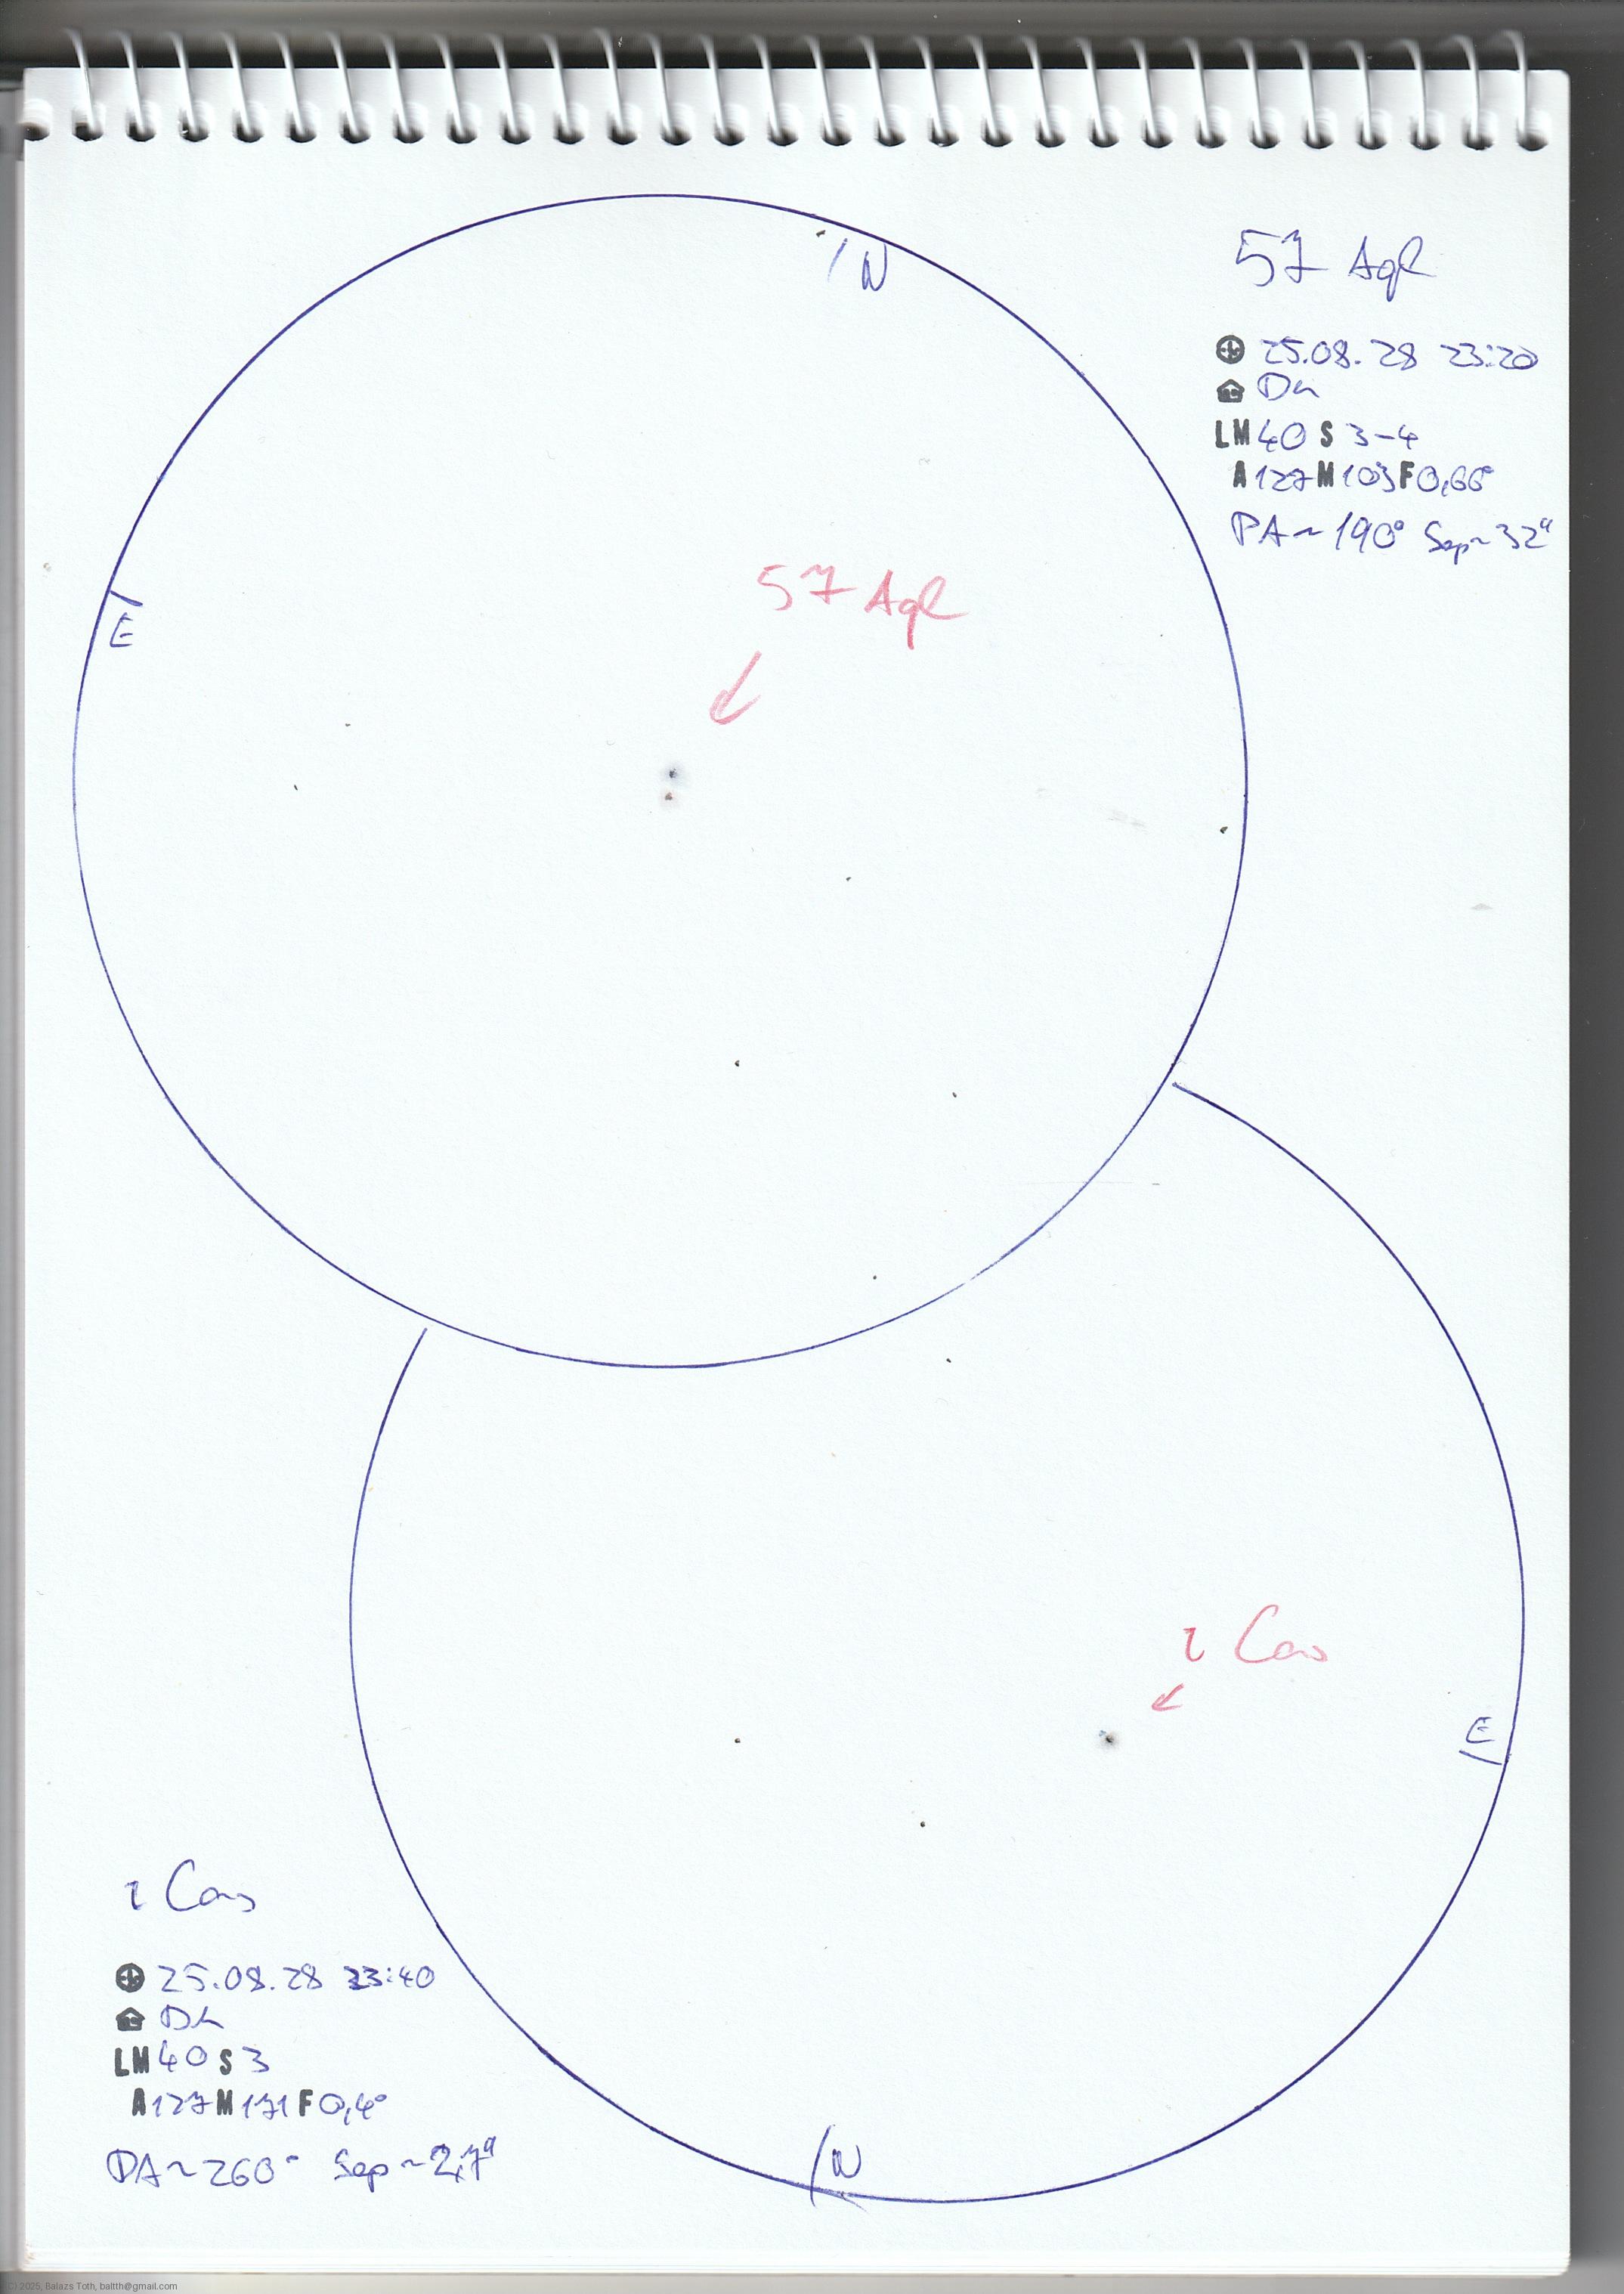 N
57 Aql
25.08.28 23:20
Dh
LM 40 S 3-4
A 127 M 103 F 0,66°
PA~190° Sep~32"
57 Aql
E
ι Cas
E
ι Cas
25.08.28 23:40
Dh
LM 40 S 3
A 127 M 171 F 0,4°
PA~260° Sep~2,7"
N
© 2025, Balazs Toth, baltth@gmail.com